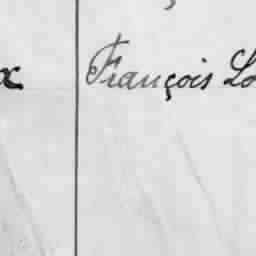 x François Lo